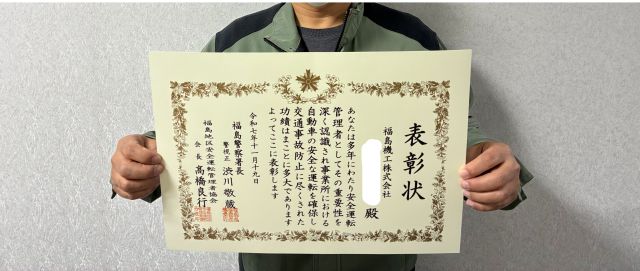 表彰状
福島機工株式会社
殿
あなたは多年にわたり安全運転
管理者としてその重要性を
深く認識され事業所における
自動車の安全な運転を確保し
交通事故防止に尽くされた
功績はまことに多大であります
よってここに表彰します
令和七年十一月十九日
福島警察署長
警視正 渋川敬蔵
福島地区安全運転管理者協会
会長 高橋良行